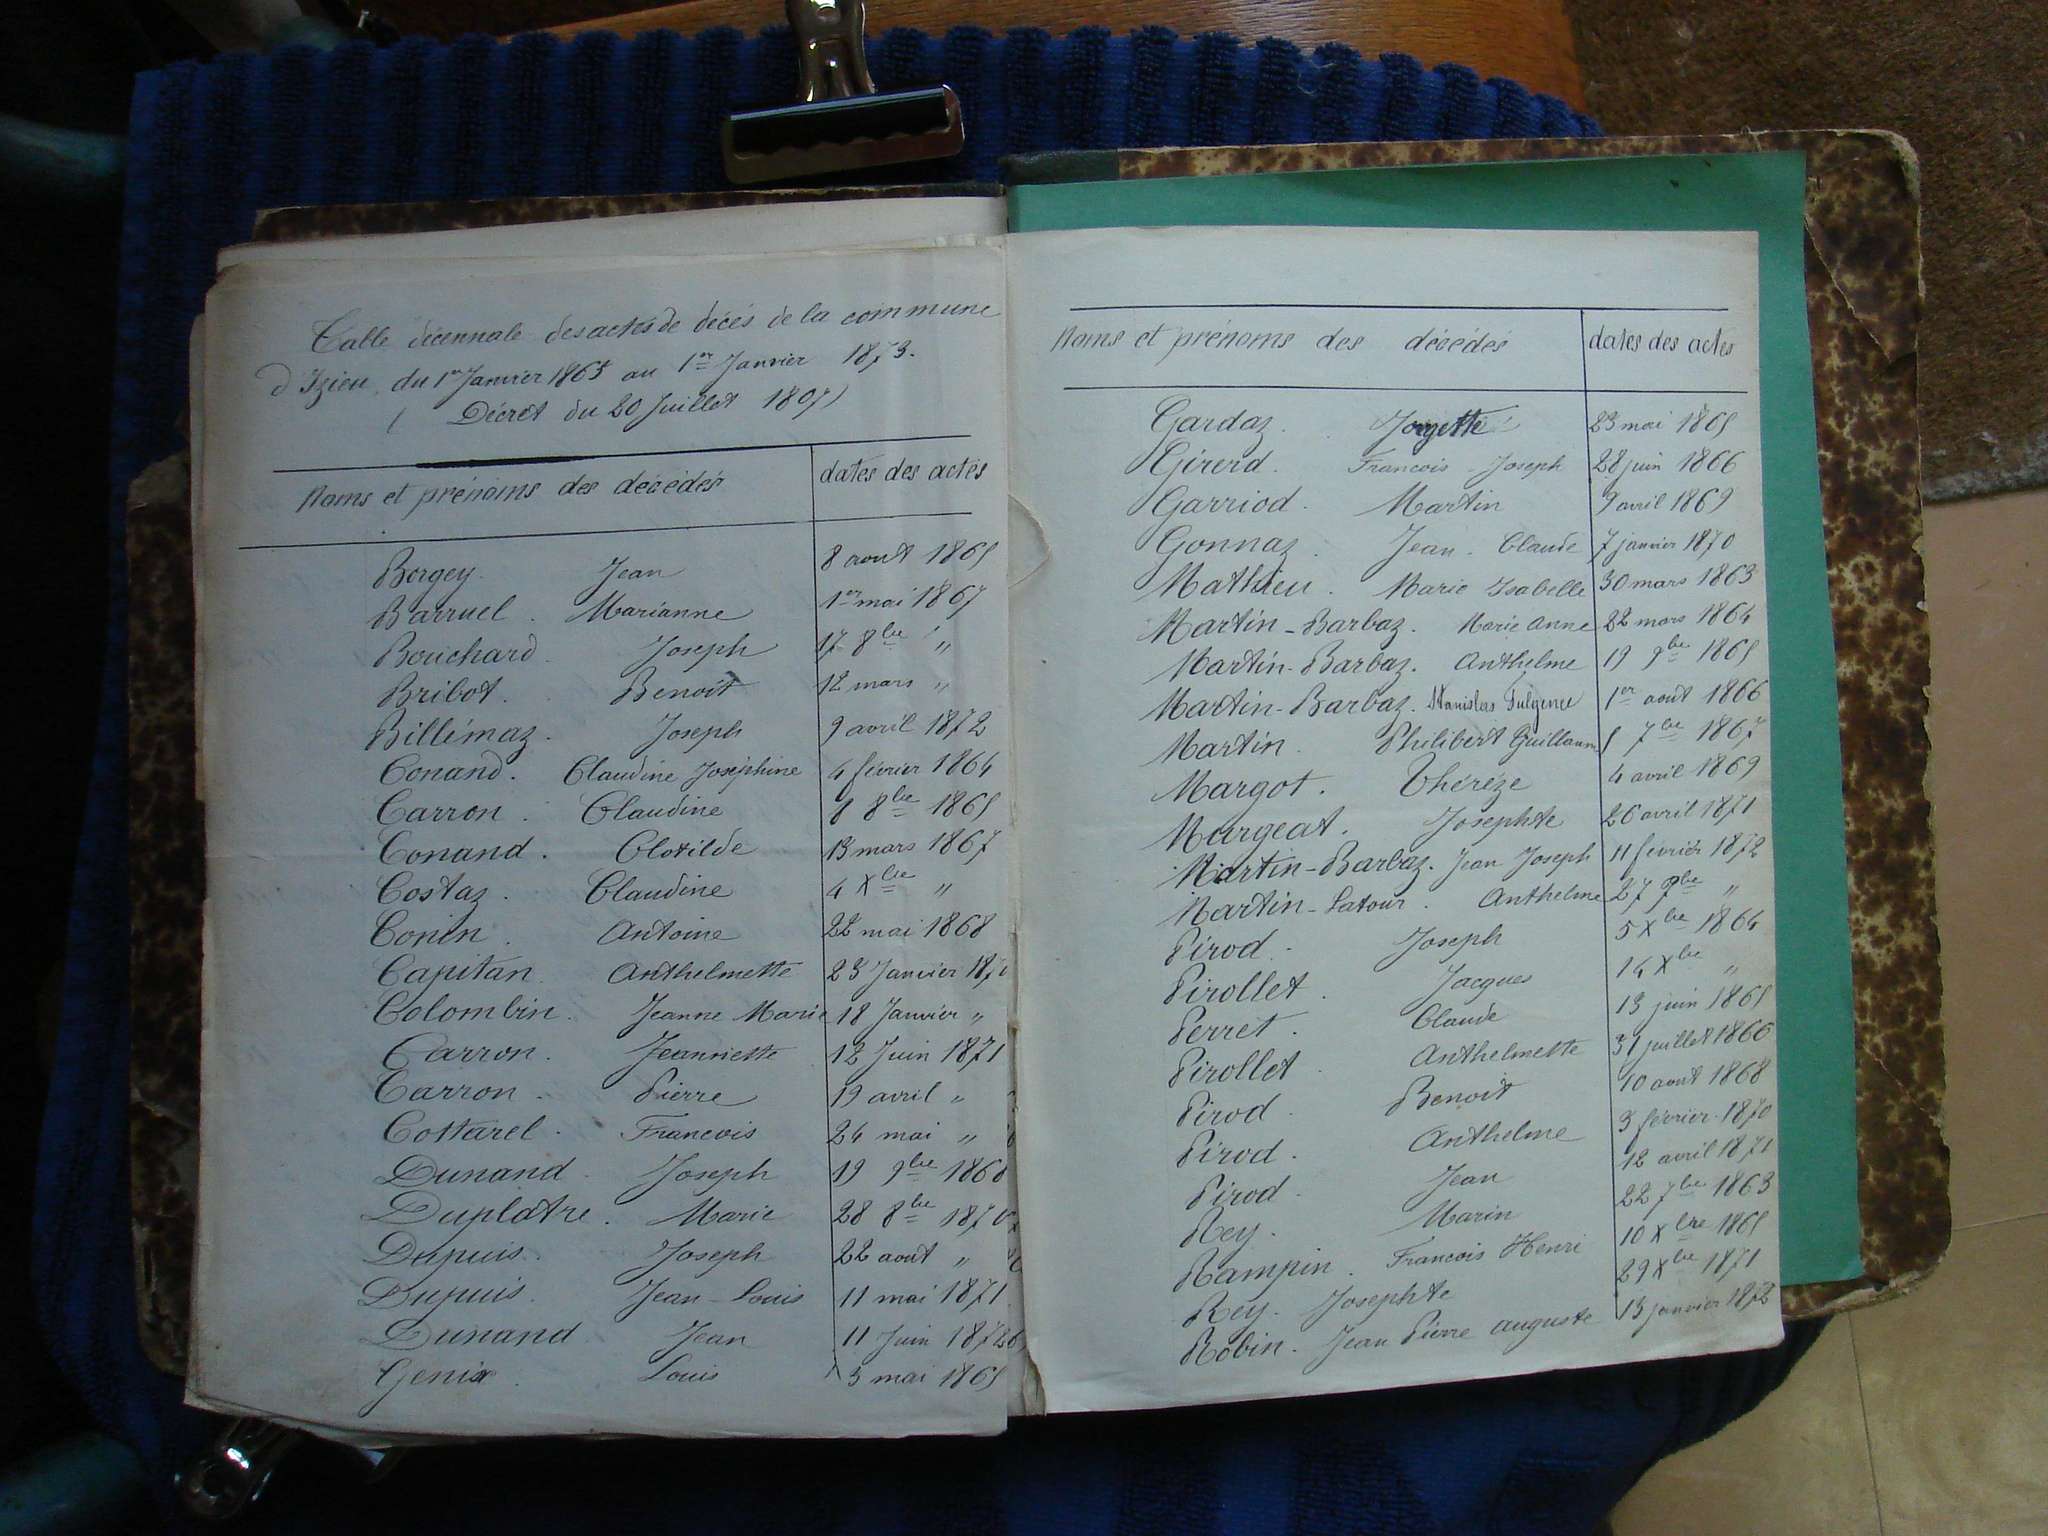 Table décennale des actes de décès de la commune
d'Izieu, du 1er Janvier 1863 au 1er Janvier 1873.
( Décret du 20 Juillet 1807)
Noms et prénoms des décédés dates des actes
Borgey. Jean 8 aout 1865
Barruel. Marianne 1er mai 1867
Bouchard. Joseph 17 8bre "
Bribot. Benoit 12 mars "
Billémaz. Joseph 9 avril 1872
Conand. Claudine Joséphine 4 février 1864
Carron. Claudine 8 8bre 1865
Conand. Clotilde 13 mars 1867
Costaz. Claudine 4 Xbre "
Conin. Antoine 22 mai 1868
Capitan. Anthelmette 23 Janvier
Colombin. Jeanne Marie 18 Janvier "
Carron. Jeannette 12 Juin 1871
Carron. Pierre 19 avril "
Cottarel. Francois 24 mai "
Dunand. Joseph 19 9bre 1868
Duplatre. Marie 28 8bre 1870
Dupuis. Joseph 22 aout "
Dupuis. Jean-Louis 11 mai 1871
Dunand Jean 11 Juin 1872
Genix. Louis 3 mai 1865
Noms et prénoms des décédés dates des actes
Gardaz. 23 mai 1865
Girerd. Francois-Joseph 28 juin 1866
Garriod. Martin 9 avril 1869
Gonnaz. Jean-Claude 7 janvier 1870
Mathieu. Marie Isabelle 30 mars 1863
Martin-Barbaz. Marie Anne 22 mars 1864
Martin-Barbaz. Anthelme 19 9bre 1865
Martin-Barbaz. Stanislas Fulgence 1er aout 1866
Martin. Philibert Guillaume 7bre 1867
Margot. Thérèze 4 avril 1869
Margeat. Josephte 26 avril 1871
Martin-Barbaz. Jean Joseph 11 février 1872
Martin-Latour. Anthelme 27 "
Pirod. Joseph 5 Xbre 1864
Pirollet. Jacques 14 Xbre "
Perret. Claude 13 juin 1865
Pirollet. Anthelmette 31 juillet 1866
Pirod. Benoit 10 aout 1868
Pirod. Anthelme 3 février 1870
Pirod. Jean 12 avril 1871
Rey. Marin 22 7bre 1863
Rampin. Francois Henri 10 Xbre 1865
Rey. Josephte 29 Xbre 1871
Robin. Jean Pierre auguste 13 janvier 1872